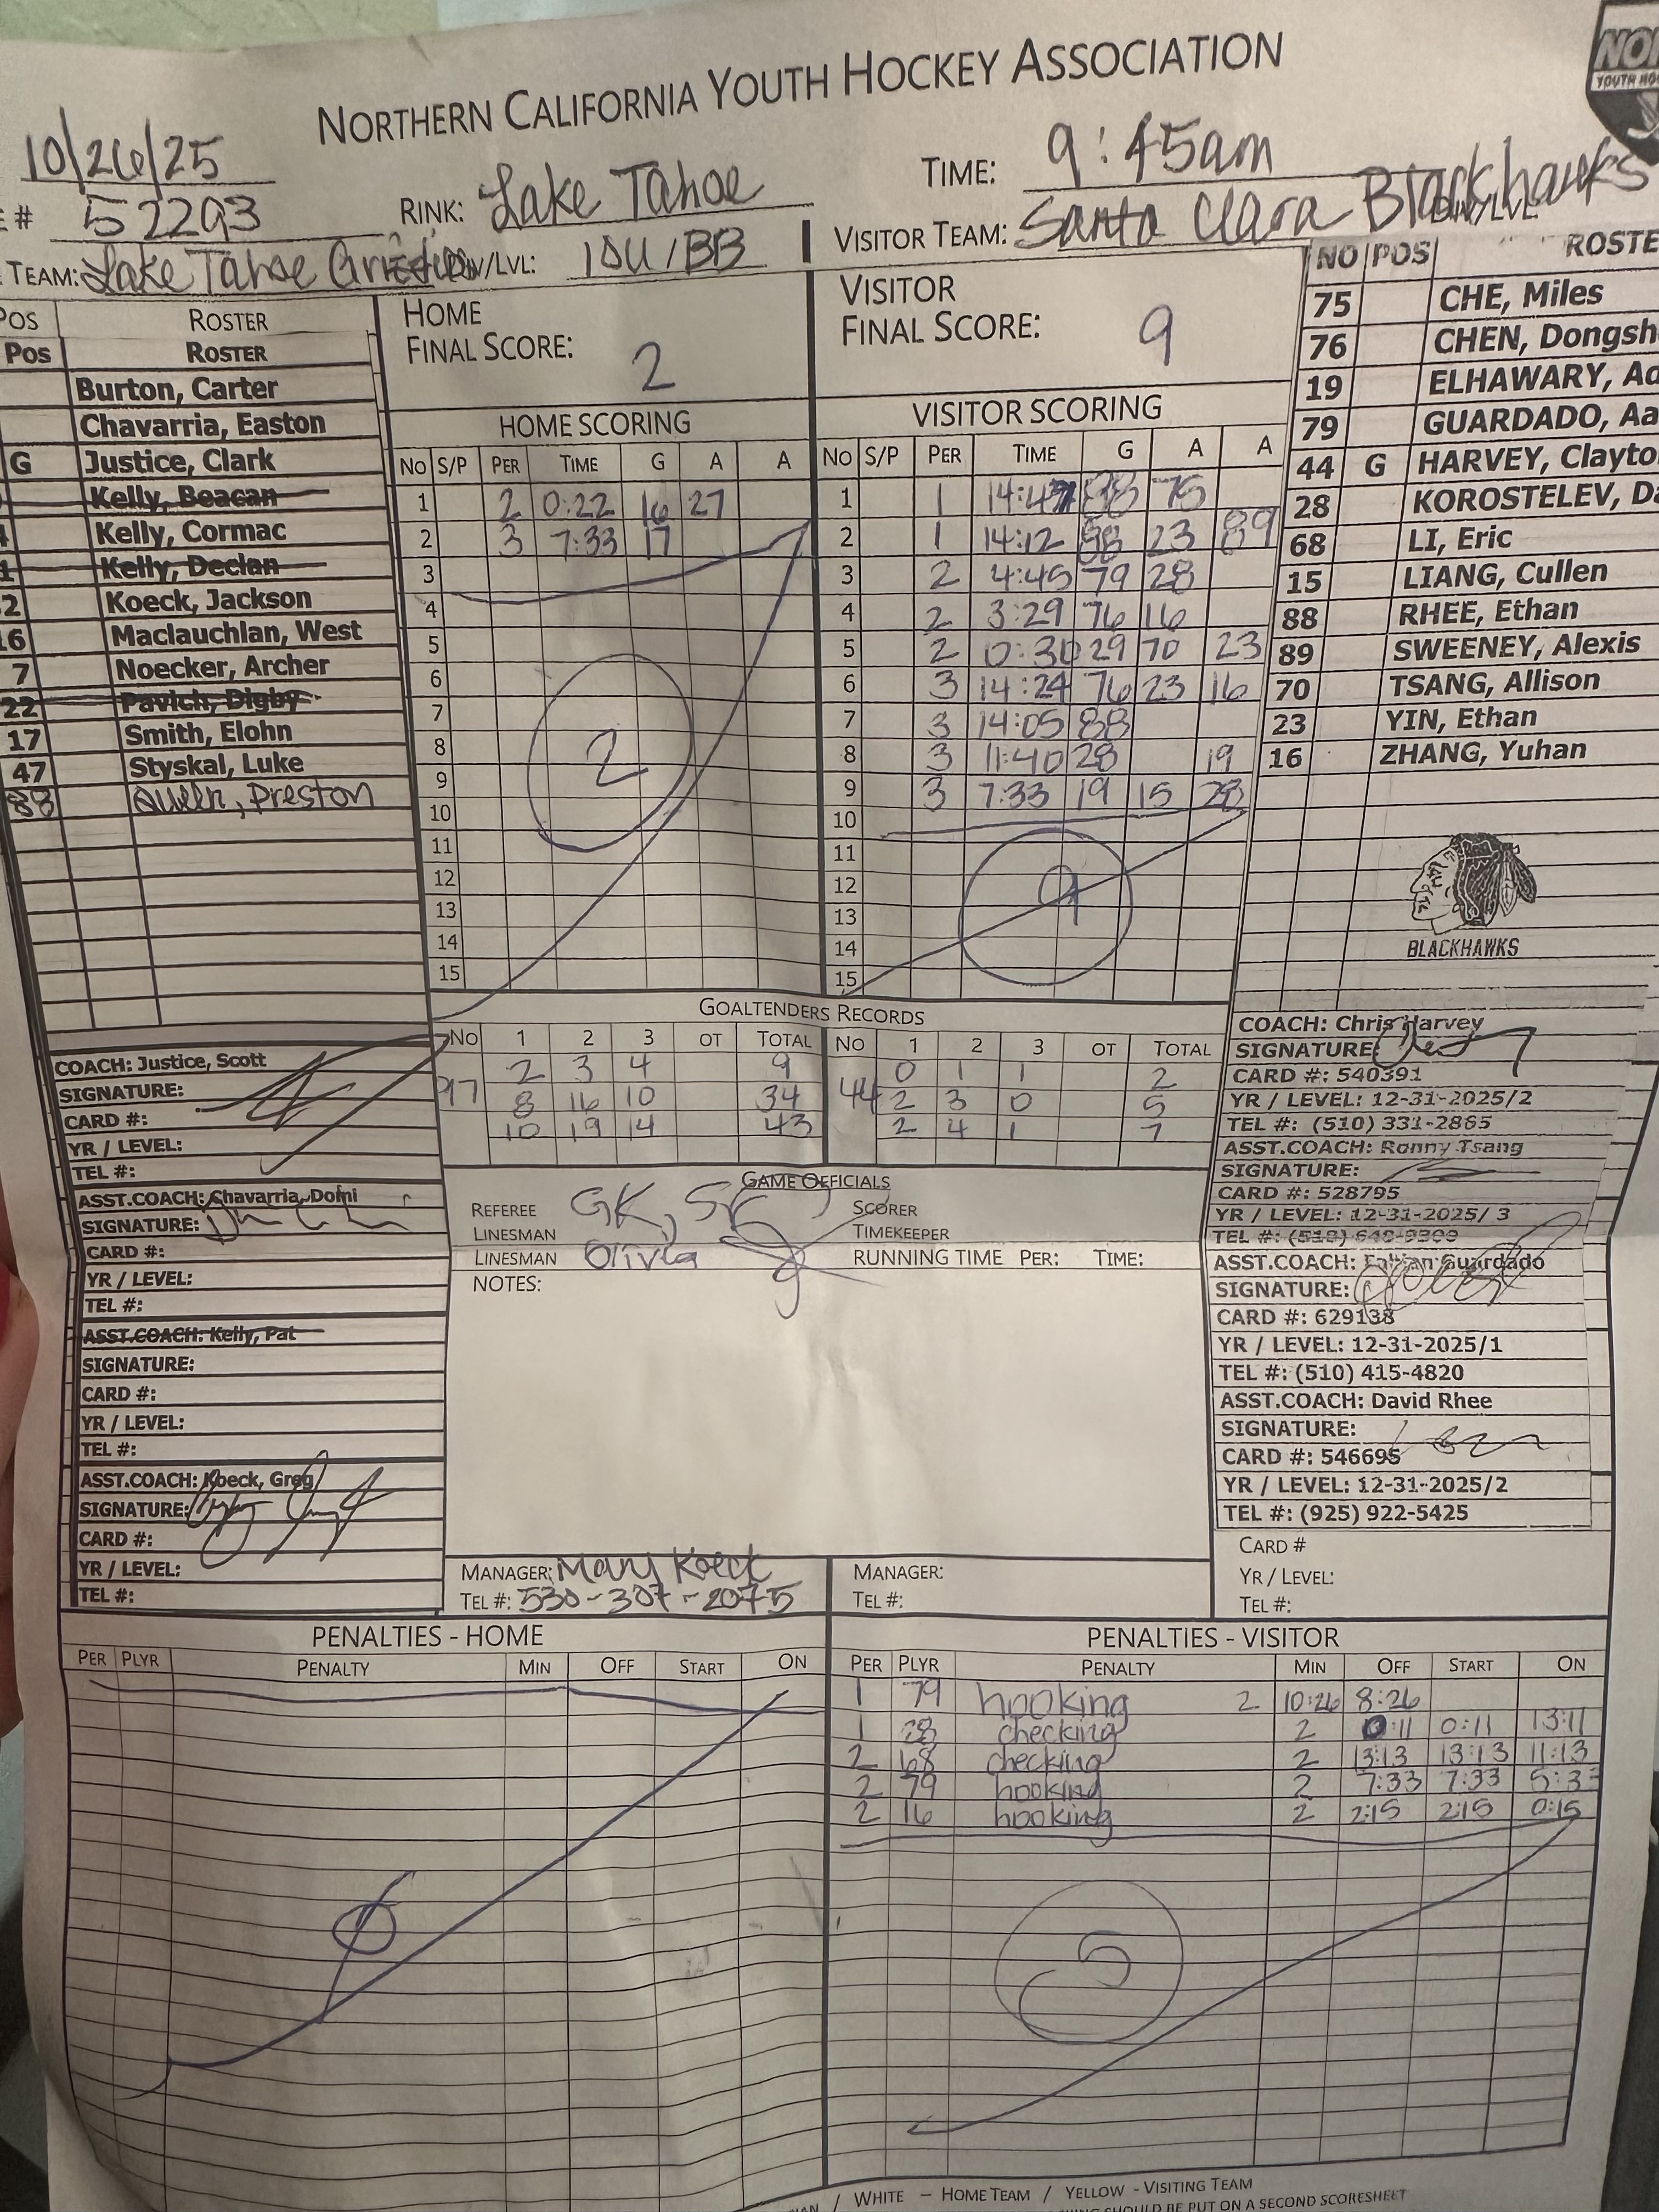 NORTHERN CALIFORNIA YOUTH HOCKEY ASSOCIATION
NOR
YOUTH HO
10/26/25
TIME: 9:45am
# 52293
RINK: Lake Tahoe
VISITOR TEAM: Santa Clara Blackhawks
TEAM: Lake Tahoe Grizzlies DIV/LVL: 10U/BB
POS ROSTER
Pos ROSTER
Burton, Carter
Chavarria, Easton
G Justice, Clark
Kelly, Beacan
Kelly, Cormac
1 Kelly, Declan
2 Koeck, Jackson
16 Maclauchlan, West
7 Noecker, Archer
22 Pavich, Digby
17 Smith, Elohn
47 Styskal, Luke
88 Preston
HOME
FINAL SCORE: 2
HOME SCORING
NO S/P PER TIME G A A
1 2 0:22 16 27
2 3 7:33 17
3
4
5
6
7
8
9
10
11
12
13
14
15
2
VISITOR
FINAL SCORE: 9
VISITOR SCORING
NO S/P PER TIME G A A
1 1 14:47 88 75
2 1 14:12 88 23 89
3 2 4:45 79 28
4 2 3:29 76 16
5 2 0:30 29 70 23
6 3 14:24 76 23 16
7 3 14:05 88
8 3 11:40 28 19
9 3 7:33 19 15 28
10
11
12
13
14
15
9
NO POS ROSTE
75 CHE, Miles
76 CHEN, Dongsh
19 ELHAWARY, Ad
79 GUARDADO, Aa
44 G HARVEY, Clayto
28 KOROSTELEV, Da
68 LI, Eric
15 LIANG, Cullen
88 RHEE, Ethan
89 SWEENEY, Alexis
70 TSANG, Allison
23 YIN, Ethan
16 ZHANG, Yuhan
BLACKHAWKS
GOALTENDERS RECORDS
NO 1 2 3 OT TOTAL NO 1 2 3 OT TOTAL
97 2 3 4 9 44 0 1 1 2
8 16 10 34 2 3 0 5
10 19 14 43 2 4 1 7
COACH: Justice, Scott
SIGNATURE:
CARD #:
YR / LEVEL:
TEL #:
ASST.COACH: Chavarria, Domi
SIGNATURE:
CARD #:
YR / LEVEL:
TEL #:
ASST.COACH: Kelly, Pat
SIGNATURE:
CARD #:
YR / LEVEL:
TEL #:
ASST.COACH: Koeck, Greg
SIGNATURE:
CARD #:
YR / LEVEL:
TEL #:
GAME OFFICIALS
REFEREE GK, SG SCORER
LINESMAN TIMEKEEPER
LINESMAN Olivia RUNNING TIME PER: TIME:
NOTES:
MANAGER: Mary Koeck
TEL #: 530-307-2075
MANAGER:
TEL #:
COACH: Chris Harvey
SIGNATURE:
CARD #: 540391
YR / LEVEL: 12-31-2025/2
TEL #: (510) 331-2865
ASST.COACH: Ronny Tsang
SIGNATURE:
CARD #: 528795
YR / LEVEL: 12-31-2025/ 3
TEL #:
ASST.COACH: Guardado
SIGNATURE:
CARD #: 629138
YR / LEVEL: 12-31-2025/1
TEL #: (510) 415-4820
ASST.COACH: David Rhee
SIGNATURE:
CARD #: 546695
YR / LEVEL: 12-31-2025/2
TEL #: (925) 922-5425
CARD #
YR / LEVEL:
TEL #:
PENALTIES - HOME
PER PLYR PENALTY MIN OFF START ON
PENALTIES - VISITOR
PER PLYR PENALTY MIN OFF START ON
1 79 hooking 2 10:26 8:26
1 28 checking 2 0:11 0:11 13:11
2 68 checking 2 13:13 13:13 11:13
2 79 hooking 2 7:33 7:33 5:33
2 16 hooking 2 2:15 2:15 0:15
5
/ WHITE – HOME TEAM / YELLOW - VISITING TEAM
SHOULD BE PUT ON A SECOND SCORESHEET